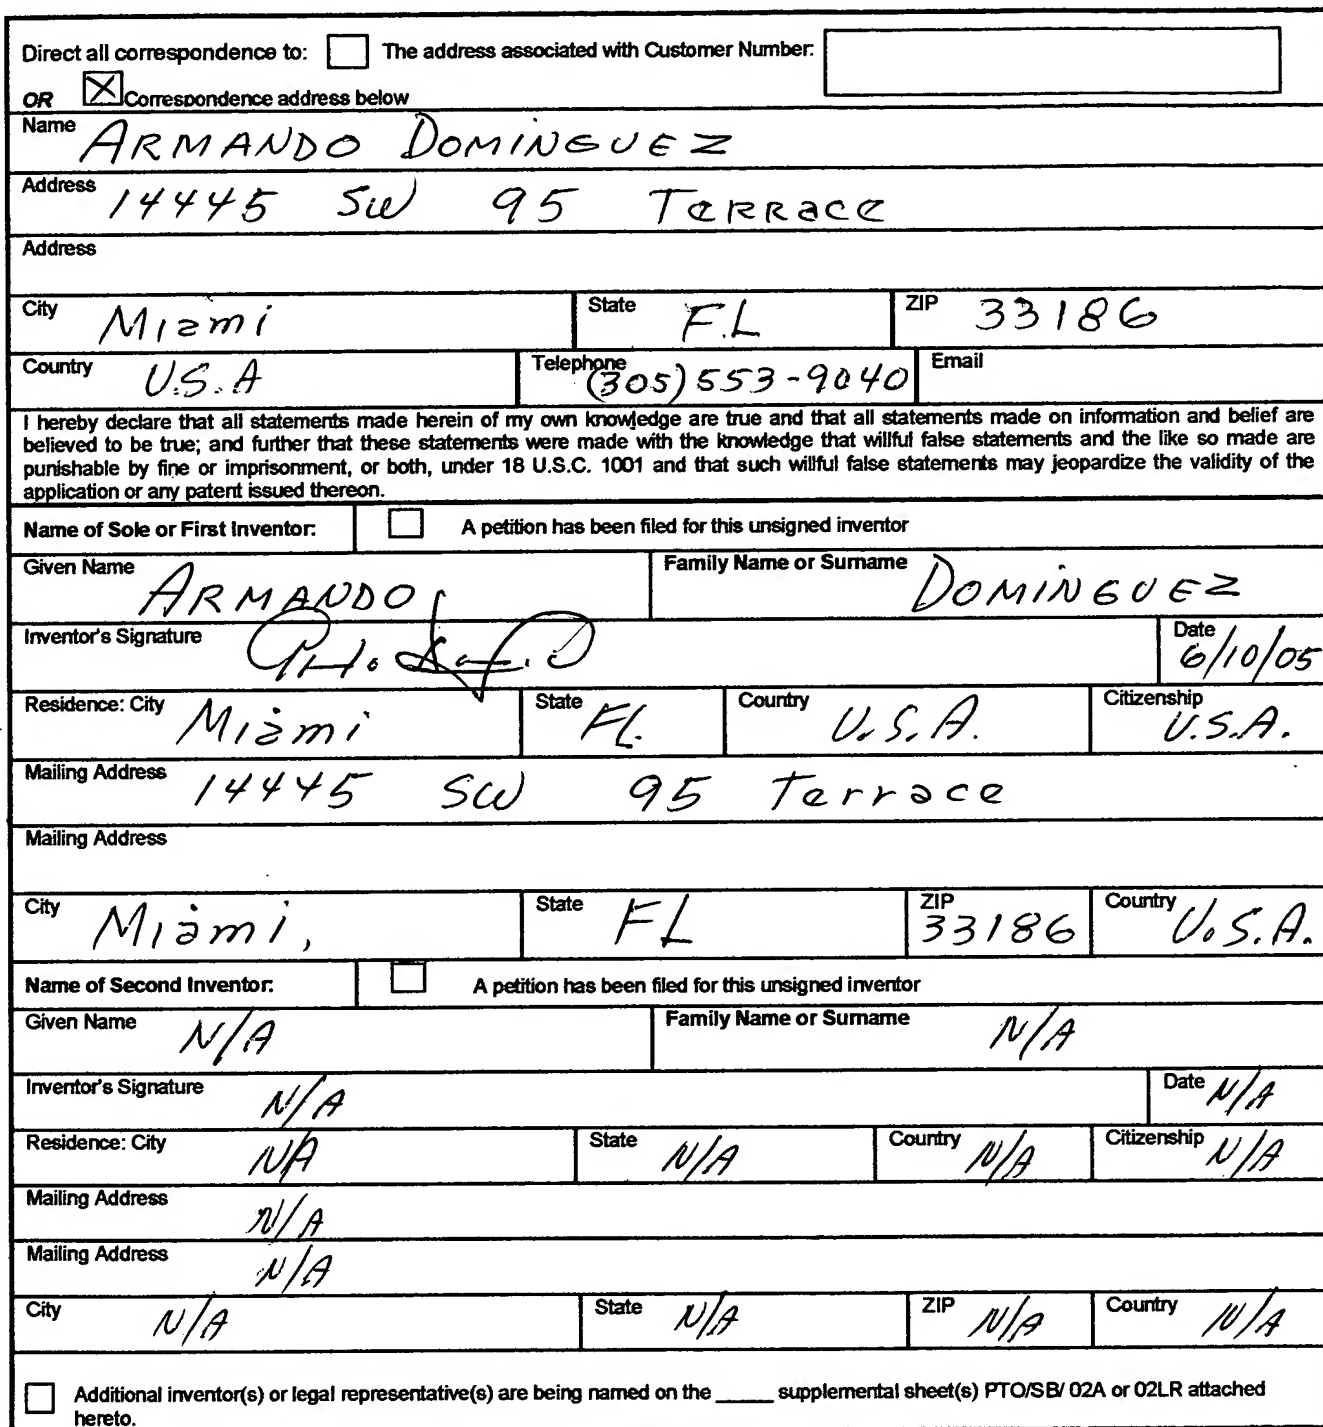 Direct all correspondence to: The address associated with Customer Number:
OR Correspondence address below
Name ARMANDO DOMINGUEZ
Address 14445 SW 95 Terrace
Address
City Miami State F.L ZIP 33186
Country U.S.A Telephone (305) 553-9040 Email
I hereby declare that all statements made herein of my own knowledge are true and that all statements made on information and belief are
believed to be true; and further that these statements were made with the knowledge that willful false statements and the like so made are
punishable by fine or imprisonment, or both, under 18 U.S.C. 1001 and that such willful false statements may jeopardize the validity of the
application or any patent issued thereon.
Name of Sole or First Inventor: A petition has been filed for this unsigned inventor
Given Name ARMANDO Family Name or Surname DOMINGUEZ
Inventor's Signature Date 6/10/05
Residence: City Miami State FL. Country U.S.A. Citizenship U.S.A.
Mailing Address 14445 SW 95 Terrace
Mailing Address
City Miami, State FL ZIP 33186 Country U.S.A.
Name of Second Inventor: A petition has been filed for this unsigned inventor
Given Name N/A Family Name or Surname N/A
Inventor's Signature N/A Date N/A
Residence: City N/A State N/A Country N/A Citizenship N/A
Mailing Address N/A
Mailing Address N/A
City N/A State N/A ZIP N/A Country N/A
Additional inventor(s) or legal representative(s) are being named on the _____ supplemental sheet(s) PTO/SB/ 02A or 02LR attached
hereto.